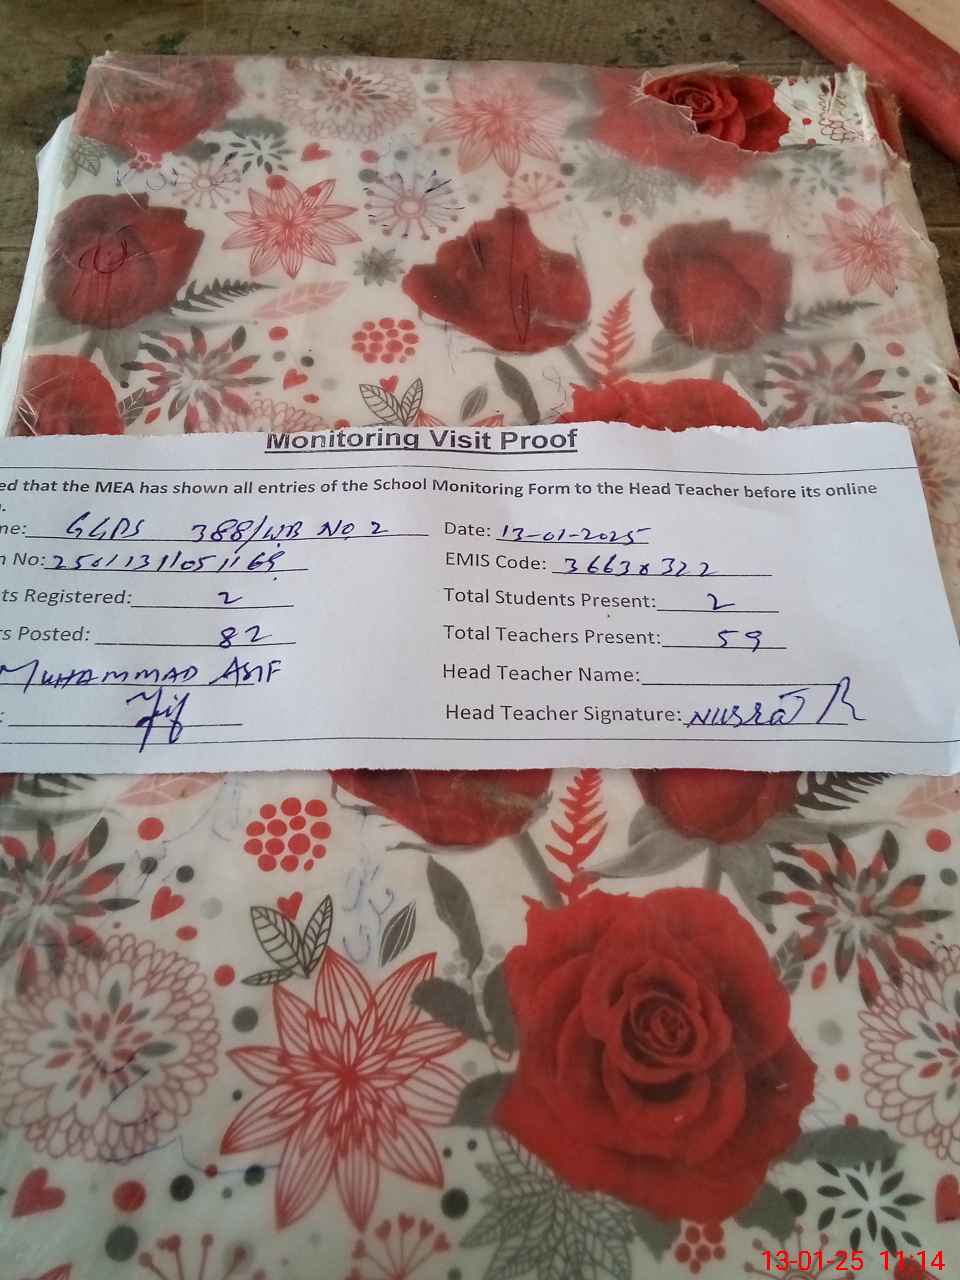 Monitoring Visit Proof
ed that the MEA has shown all entries of the School Monitoring Form to the Head Teacher before its online
me: GGPS 388/WB NO 2 Date: 13-01-2025
n No: EMIS Code:
ts Registered: 2 Total Students Present: 2
rs Posted: 82 Total Teachers Present: 59
MUHAMMAD ASIF Head Teacher Name:
: Head Teacher Signature: NUSRAT
13-01-25 11:14